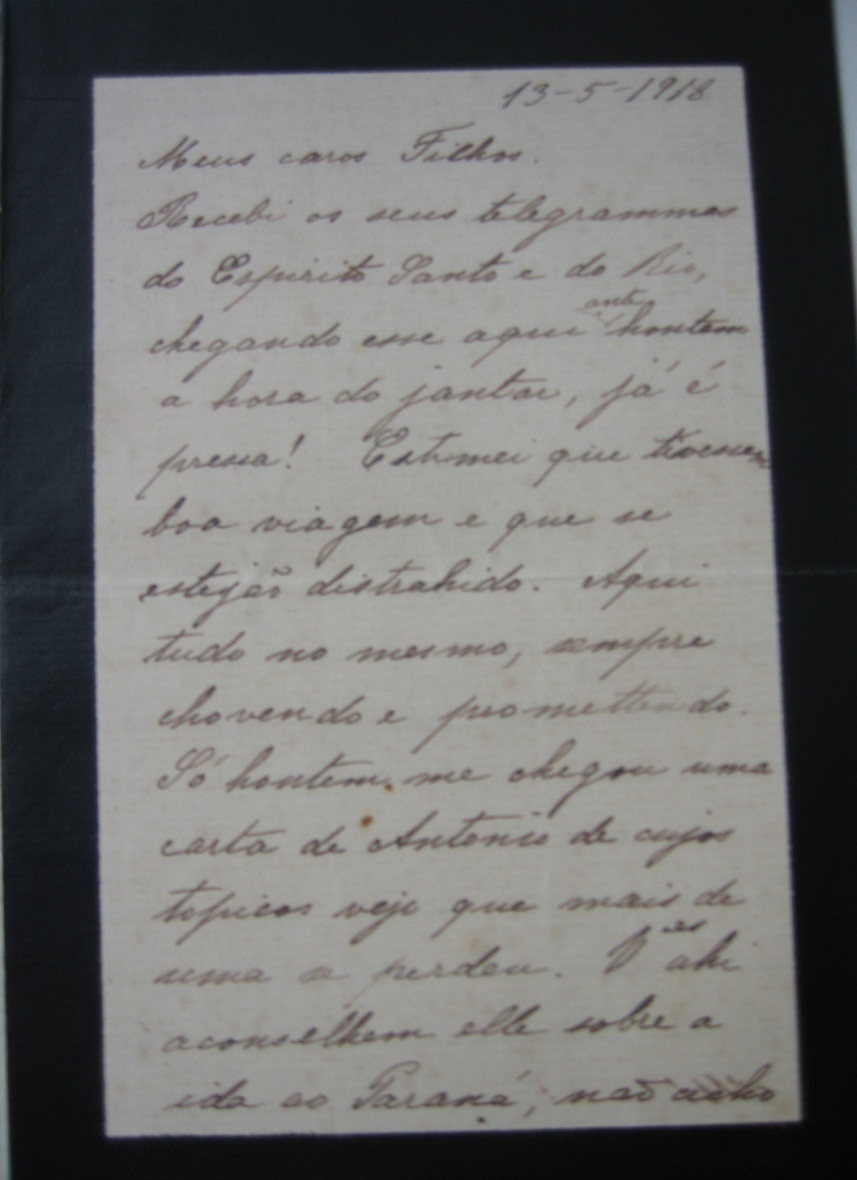 13-5-1918
Meus caros Filhos.
Recebi os seus telegrammas
do Espirito Santo e do Rio,
chegando esse aqui ante hontem
a hora do jantar, já é
pressa! Estimei que tivessem
boa viagem e que se
estejão distrahido. Aqui
tudo no mesmo, sempre
chovendo e promettendo.
Só hontem me chegou uma
carta de Antonio de cujos
topicos vejo que mais de
uma se perdeu. Vces ahi
aconselhem elle sobre a
ida ao Paraná, não acho